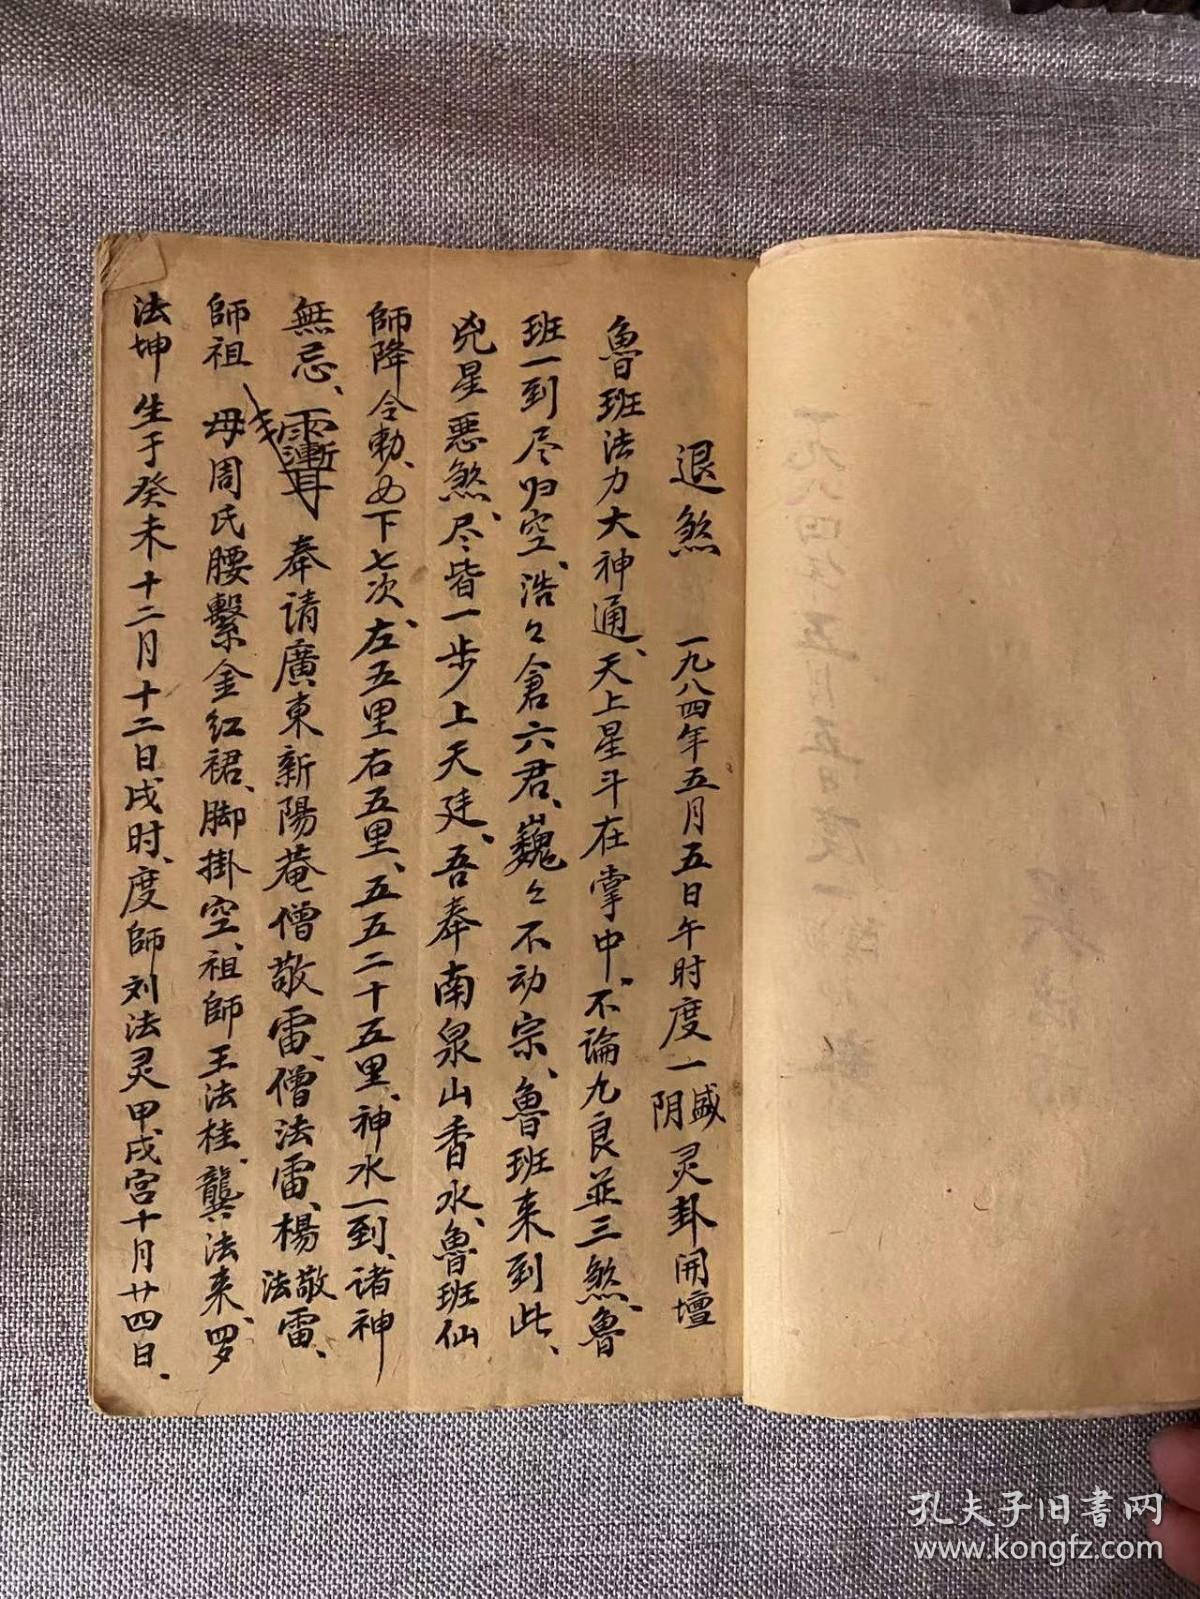 退煞 一九八四年五月五日午时度一盛阴灵卦開壇
魯班法力大神通、天上星斗在掌中、不論九良並三煞、魯
班一到尽归空、浩々倉六君、巍々不动宗、魯班来到此、
兇星惡煞、尽皆一步上天廷、吾奉南泉山香水、魯班仙
師降令勅、如下七次、左五里右五里、五五二十五里、神水一到、诸神
無忌、奉请廣東新陽菴僧敬雷、僧法雷、楊敬法雷、
師祖、母周氏腰繫金红裙、脚掛空、祖師王法桂、龔法来、罗
法坤生于癸未十二月十二日戌时、度師刘法灵甲戌宫十月廿四日、
孔夫子旧书网
www.kongfz.com